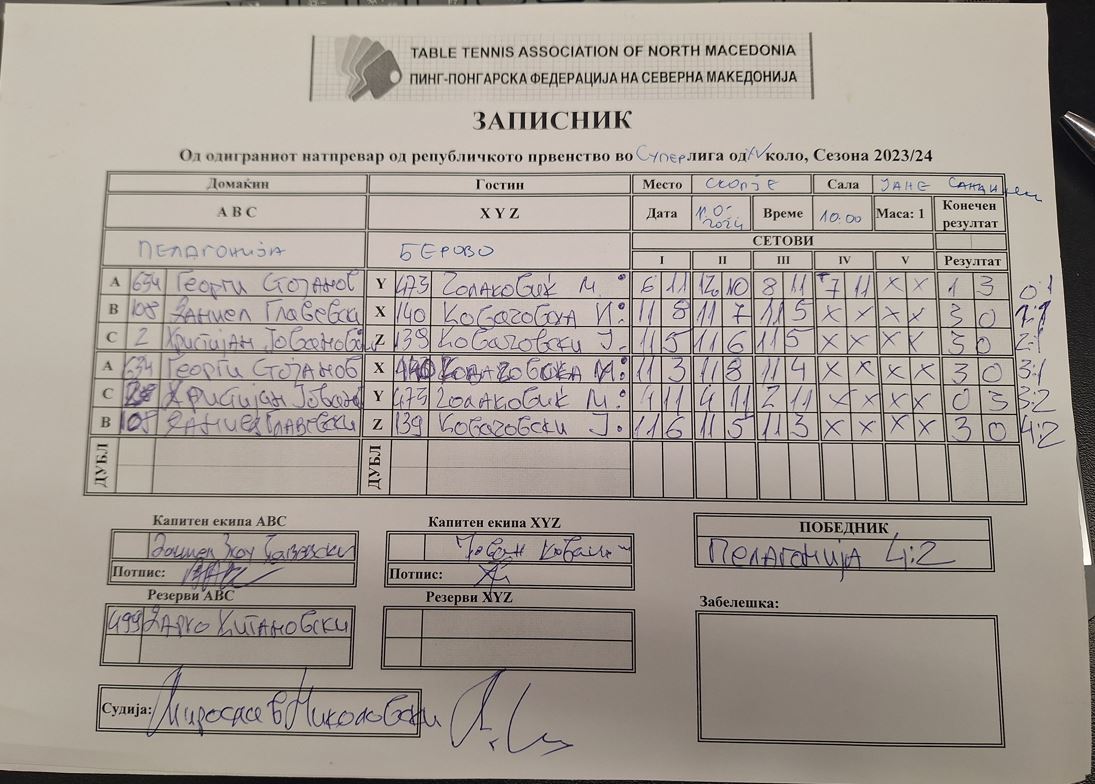 TABLE TENNIS ASSOCIATION OF NORTH MACEDONIA
ПИНГ-ПОНГАРСКА ФЕДЕРАЦИЈА НА СЕВЕРНА МАКЕДОНИЈА
ЗАПИСНИК
Од одиграниот натпревар од републичкото првенство во Супер лига од XV коло, Сезона 2023/24
Домаќин Гостин Место СКОПЈЕ Сала ЈАНЕ
A B C X Y Z Дата Време 10.00 Маса: 1 Конечен резултат
ПЕЛАГОНИЈА БЕРОВО СЕТОВИ
I II III IV V Резултат
A 634 Георги Стојанов Y 473 Чолаковиќ М. : 6 11 12 10 8 11 7 11 X X 1 3 0:1
B 108 Даниел Главевски X 140 Ковачовска И : 11 8 11 7 11 5 X X X X 3 0 1:1
C 2 Кристијан Јовановски Z 139 Ковачовски Ј. 11 5 11 6 11 5 X X X X 3 0 2:1
A 634 Георги Стојанов X 140 Ковачовска И : 11 3 11 8 11 4 X X X X 3 0 3:1
C Кристијан Јован Y 473 Чолаковиќ М. : 4 11 4 11 2 11 X X X X 0 3 3:2
B 108 Даниел Главевски Z 139 Ковачовски Ј. : 11 6 11 5 11 3 X X X X 3 0 4:2
ДУБЛ ДУБЛ
Капитен екипа ABC Капитен екипа XYZ ПОБЕДНИК
Јован ПЕЛАГОНИЈА 4:2
Потпис: Потпис:
Резерви ABC Резерви XYZ Забелешка:
499 Дарко Китановски
Судија: Мирослав Николовски